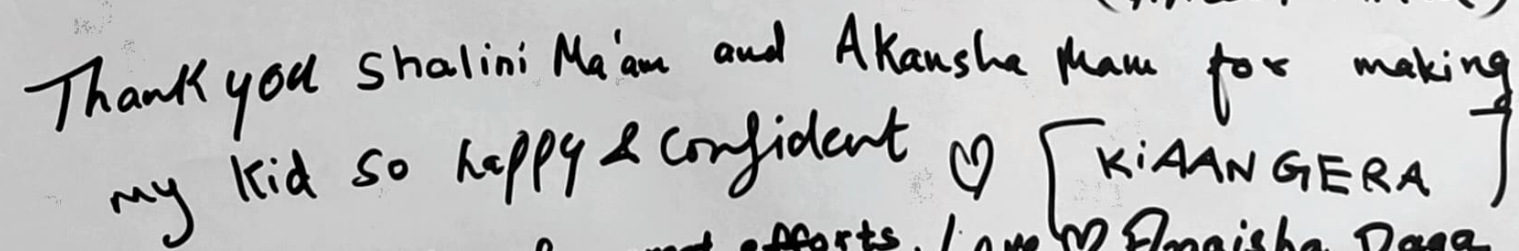 Thank you Shalini Ma'am and Akansha Mam for making
my kid so happy & confident ♡ [KiAAN GERA]
efforts. Love ♡